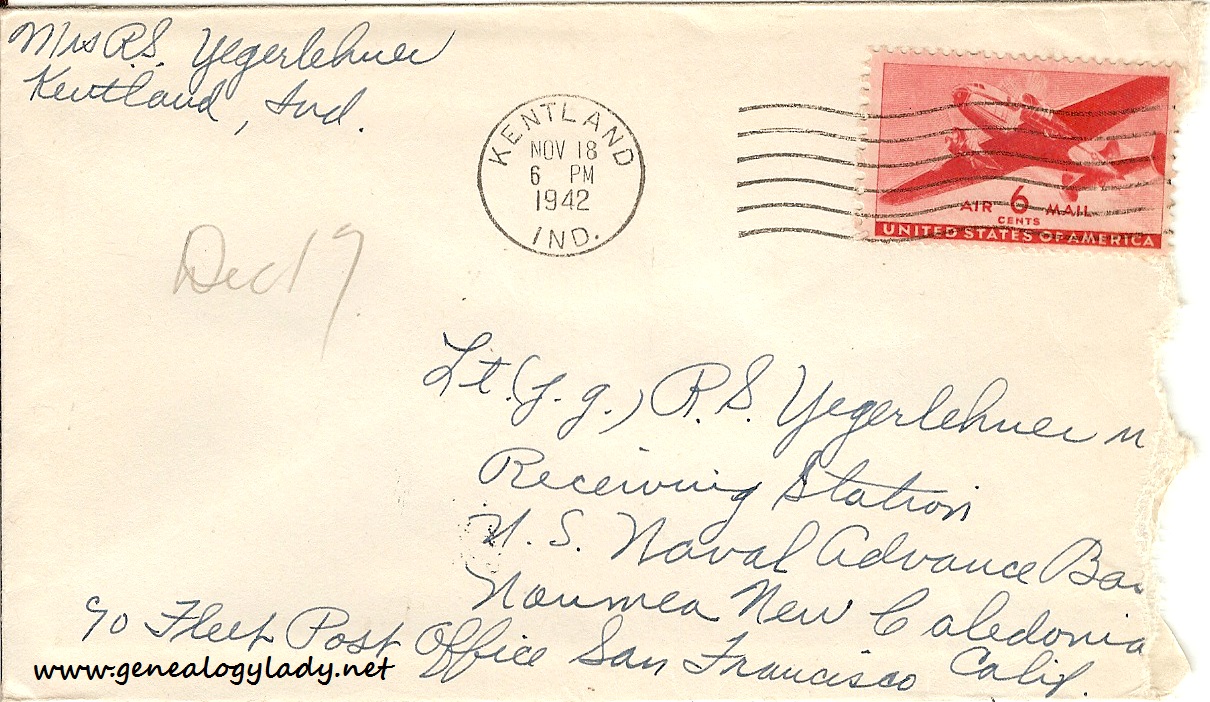 Mrs R.S. Yegerlehner
Kentland, Ind.
KENTLAND
NOV 18
6 PM
1942
IND.
AIR 6 MAIL
CENTS
UNITED STATES OF AMERICA
Dec 19
Lt. (j.g.) R.S. Yegerlehner
Receiving Station
U.S. Naval Advance
Noumea New Caledonia
c/o Fleet Post Office San Francisco Calif.
www.genealogylady.net